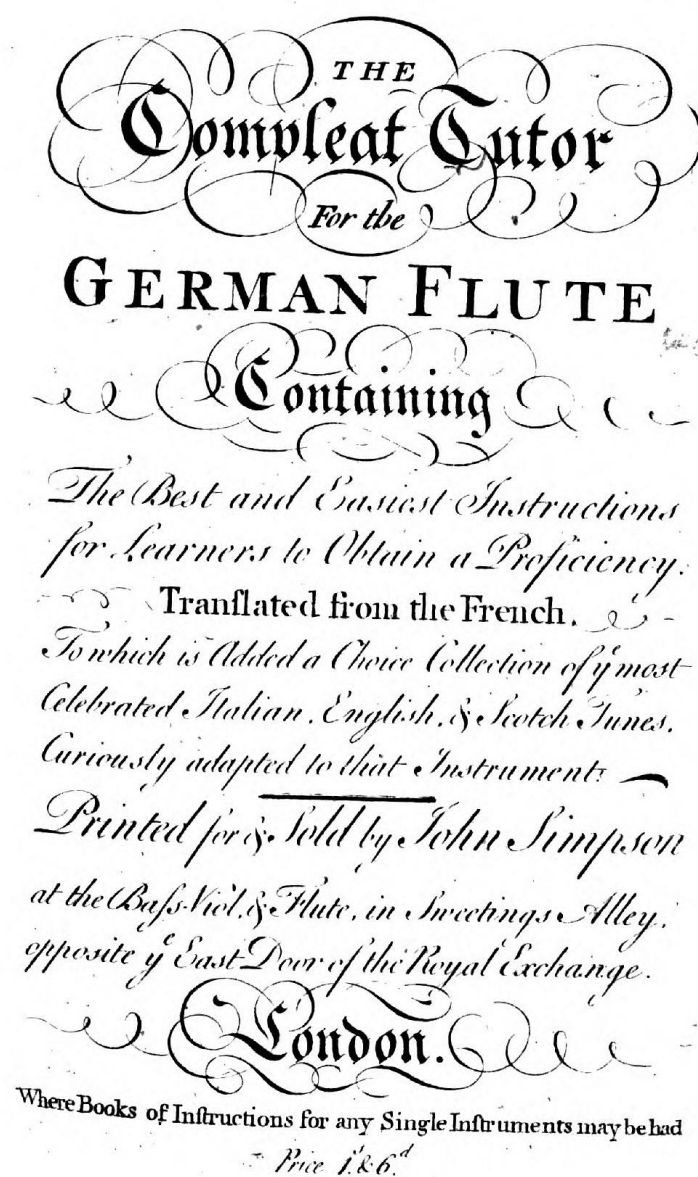 THE
Compleat Tutor
For the
GERMAN FLUTE
Containing
The Best and Easiest Instructions
for Learners to Obtain a Proficiency.
Tranſlated from the French.
To which is Added a Choice Collection of yᵉ most
Celebrated Italian, English, & Scotch Tunes,
Curiously adapted to that Instrument.
Printed for & Sold by John Simpson
at the Baſs-Viol, & Flute, in Sweetings Alley,
opposite yᵉ East Door of the Royal Exchange.
London.
Where Books of Inſtructions for any Single Inſtruments may be had
Price 1ˢ. & 6ᵈ.